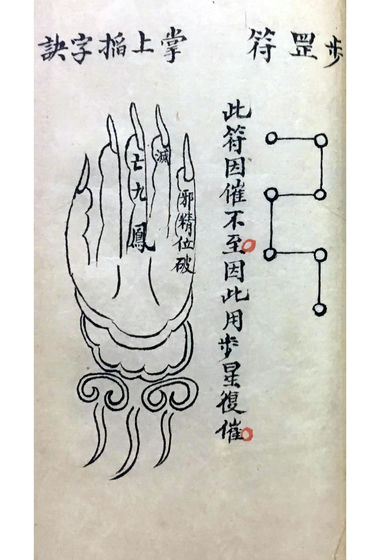 步罡符
此符因催不至因此用步星復催
掌上掐字訣
邪精位破
滅
亡九鳳